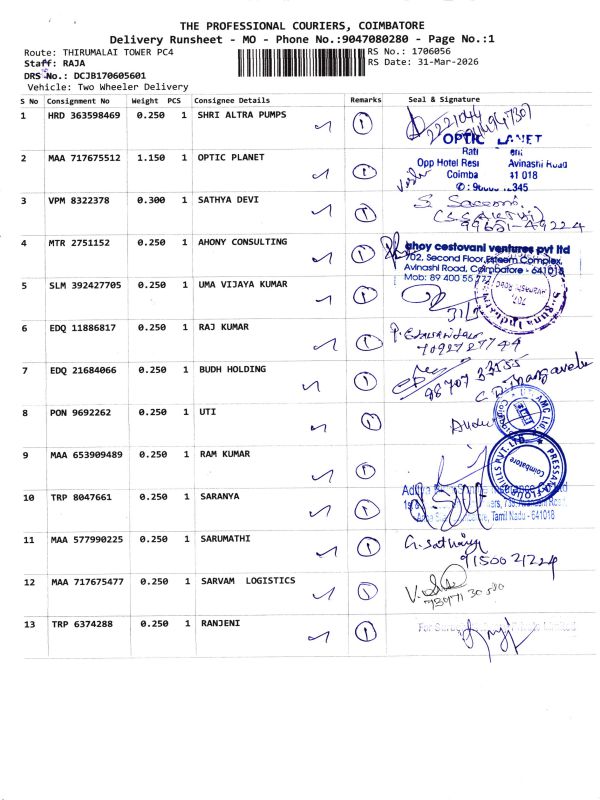 THE PROFESSIONAL COURIERS, COIMBATORE
Delivery Runsheet - MO - Phone No.:9047080280 - Page No.:1
Route: THIRUMALAI TOWER PC4
RS No.: 1706056
Staff: RAJA
RS Date: 31-Mar-2026
DRS No.: DCJB170605601
Vehicle: Two Wheeler Delivery
S No Consignment No Weight PCS Consignee Details Remarks Seal & Signature
1 HRD 363598469 0.250 1 SHRI ALTRA PUMPS 1
2 MAA 717675512 1.150 1 OPTIC PLANET 1
OPTIC PLANET
Opp Hotel Resi Avinashi Road
Coimba 41 018
3 VPM 8322378 0.300 1 SATHYA DEVI 1
99651-49224
4 MTR 2751152 0.250 1 AHONY CONSULTING 1
ahoy cestovani ventures pvt ltd
702, Second Floor, Esteem Complex,
Avinashi Road, Coimbatore - 641018
Mob: 89 400 55
5 SLM 392427705 0.250 1 UMA VIJAYA KUMAR 1
6 EDQ 11886817 0.250 1 RAJ KUMAR 1
7092727744
7 EDQ 21684066 0.250 1 BUDH HOLDING 1
98707 33155
8 PON 9692262 0.250 1 UTI 1
9 MAA 653909489 0.250 1 RAM KUMAR 1
PRESSANA FLOUR MILLS PVT. LTD.
Coimbatore
10 TRP 8047661 0.250 1 SARANYA 1
Tamil Nadu - 641018
11 MAA 577990225 0.250 1 SARUMATHI 1
9150021224
12 MAA 717675477 0.250 1 SARVAM LOGISTICS 1
13 TRP 6374288 0.250 1 RANJENI 1